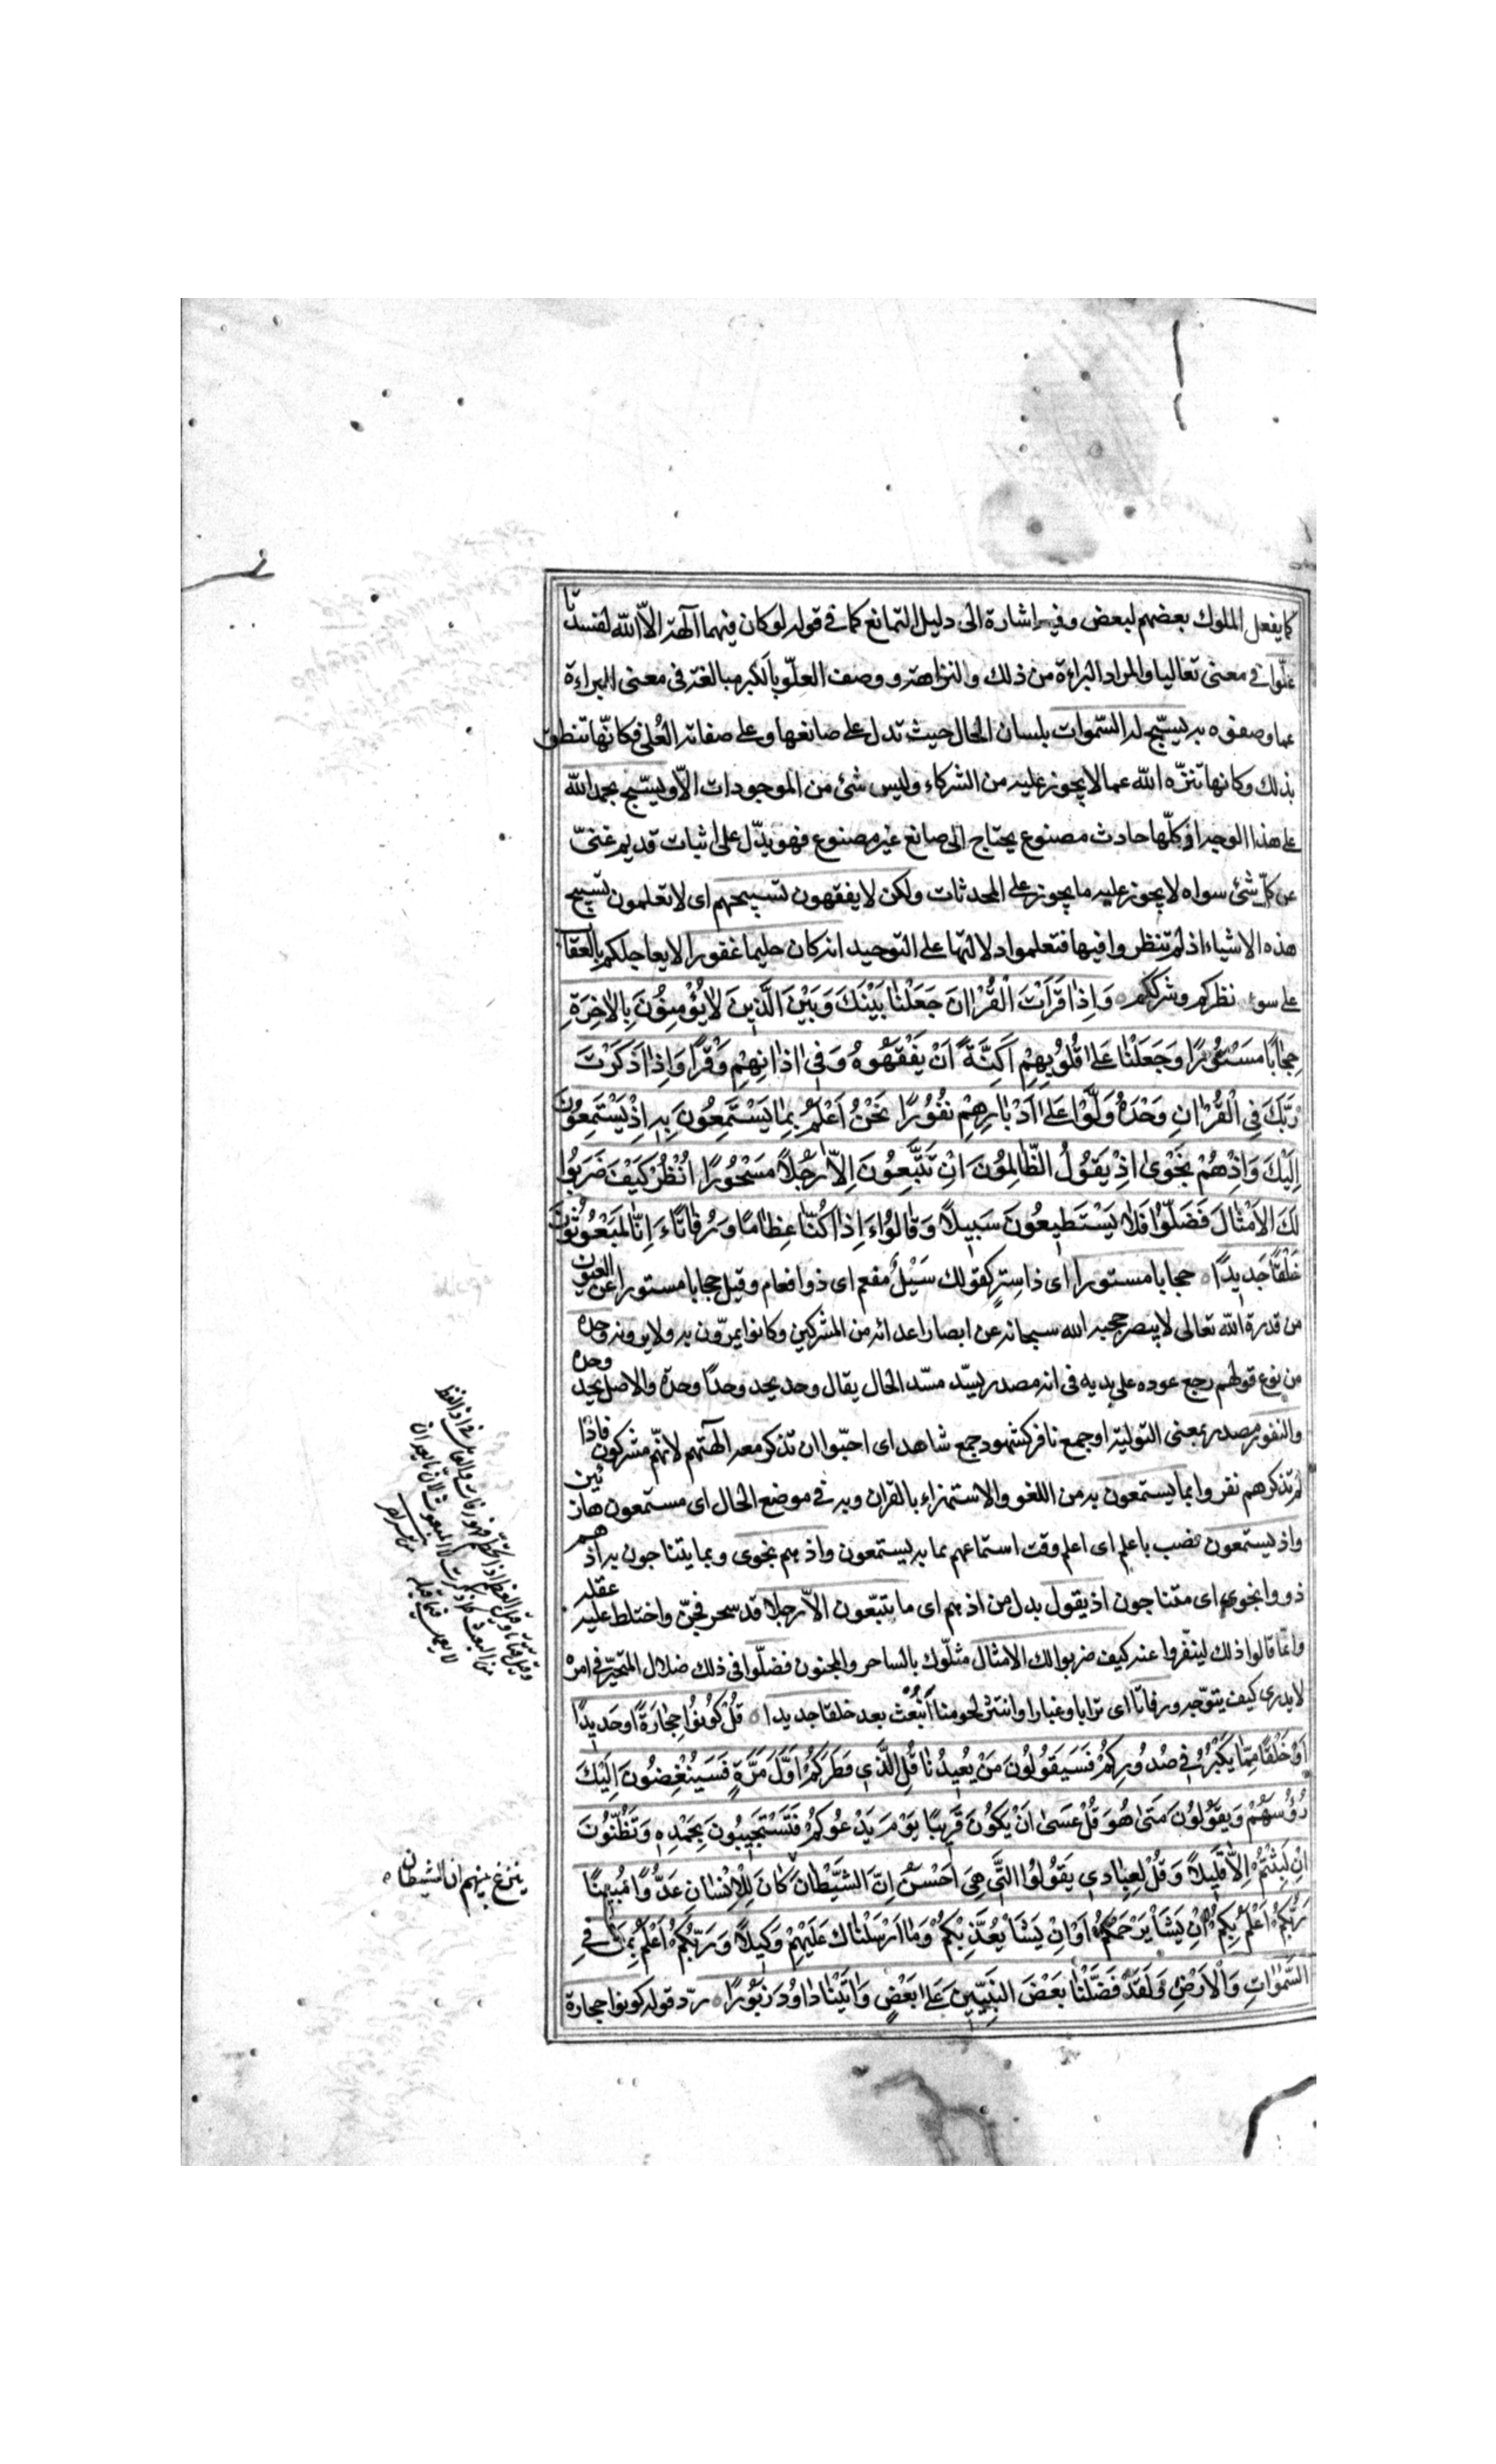 كما يفعل الملوك بعضهم لبعض وفيه اشارة الى دليل التمانع كما في قوله لو كان فيهما آلهة الاّ الله لفسدتا
علوّا في معنى تعاليا والمراد البراءة من ذلك والنزاهة ووصف العلوّ بالكبر مبالغة في معنى البراءة
عما وصفوه به يسبّح له السّموات بلسان الحال حيث تدل على صانعها وعلى صفاته العُلى فكانّها تنطق
بذلك وكانها تنزّه الله عما لا يجوز عليه من الشركاء وليس شئ من الموجودات الاّ ويسبّح بحمد الله
على هذا الوجه اذ كلّها حادث مصنوع يحتاج الى صانع غير مصنوع فهو يدّل على اثبات قديم غنىّ
عن كلّ شئ سواه لا يجوز عليه ما يجوز على المحدثات ولكن لا يفقهون تسبيحهم اى لا تعلمون تسبيح
هذه الاشياء اذ لم تنظروا فيها فتعلموا دلالتها على التوحيد انه كان حليما غفورا لا يعاجلكم بالعقاب
على سوء نظركم وشرككم وَاِذَا قَرَاْتَ الْقُرْاٰنَ جَعَلْنٰا بَيْنَكَ وَبَيْنَ الَّذِينَ لاٰ يُؤْمِنُونَ بِالاٰخِرَةِ
حِجٰابًا مَسْتُورًا وَجَعَلْنٰا عَلىٰ قُلُوبِهِمْ اَكِنَّةً اَنْ يَفْقَهُوهُ وَفِى اٰذٰانِهِمْ وَقْرًا وَاِذٰا ذَكَرْتَ
رَبَّكَ فِي الْقُرْاٰنِ وَحْدَهُ وَلَّوْا عَلىٰ اَدْبٰارِهِمْ نُفُورًا نَحْنُ اَعْلَمُ بِمٰا يَسْتَمِعُونَ بِهِ اِذْ يَسْتَمِعُونَ
اِلَيْكَ وَاِذْ هُمْ نَجْوىٰ اِذْ يَقُولُ الظّٰالِمُونَ اِنْ تَتَّبِعُونَ اِلاّٰ رَجُلاً مَسْحُورًا اُنْظُرْ كَيْفَ ضَرَبُوا
لَكَ الاَمْثٰالَ فَضَلُّوا فَلاٰ يَسْتَطِيعُونَ سَبِيلاً وَقٰالُوا ءَاِذٰا كُنّٰا عِظٰامًا وَرُفٰاتًا ءَاِنّٰا لَمَبْعُوثُونَ
خَلْقًا جَدِيدًا حجابا مستورا اى ذا سترٍ كقولك سَيْلٌ مفعم اى ذو افعام وقيل حجابا مستورا عن العيون
من قدرة الله تعالى لا يبصر حجبه الله سبحانه عن ابصار اعدائه من المشركين وكانوا يمرّون به ولا يرونه وحده
من نوع قولهم رجع عوده على بديه في انه مصدر يسدّ مسّد الحال يقال وحد يحد وحدًا وحدة والاصل يحد وحده
والنفور مصدر بمعنى التولية او جمع نافر كشهود جمع شاهد اى احبّوا ان تذكر معه الهتهم لانّهم مشركون فاذا
لم تذكرهم نفروا بما يستمعون به من اللغو والاستهزاء بالقران وبه في موضع الحال اى مستمعون هازئين
واذ يستمعون نصب باعلم اى اعلم وقت استماعهم بما به يستمعون واذ هم نجوى وبما يتناجون به اذ هم
ذووا نجوى اى متناجون اذ يقول بدل من اذ هم اى ما يتبّعون الاّ رجلا قد سحر فجنّ واختلط عليه عقله
وانما قالوا ذلك لينفّروا عنه كيف ضربوا لك الامثال مثلّوك بالساحر والمجنون فضلّوا في ذلك ضلال المتحيّر في امره
لا يدرى كيف يتوجّه ورفاتا اى ترابا وغبارا وانتثر لحومنا أنُبْعَث بعد خلقا جديدا قُلْ كُونُوا حِجٰارَةً اَوْ حَدِيدًا
اَوْ خَلْقًا مِمّٰا يَكْبُرُ فِي صُدُورِكُمْ فَسَيَقُولُونَ مَنْ يُعِيدُنٰا قُلِ الَّذِي فَطَرَكُمْ اَوَّلَ مَرَّةٍ فَسَيُنْغِضُونَ اِلَيْكَ
رُؤُسَهُمْ وَيَقُولُونَ مَتىٰ هُوَ قُلْ عَسىٰ اَنْ يَكُونَ قَرِيبًا يَوْمَ يَدْعُوكُمْ فَتَسْتَجِيبُونَ بِحَمْدِهِ وَتَظُنُّونَ
اِنْ لَبِثْتُمْ اِلاّٰ قَلِيلاً وَقُلْ لِعِبٰادِي يَقُولُوا الَّتِي هِيَ اَحْسَنُ اِنَّ الشَّيْطٰانَ كٰانَ لِلْاِنْسٰانِ عَدُوًّا مُبِينًا
رَبُّكُمْ اَعْلَمُ بِكُمْ اِنْ يَشَأْ يَرْحَمْكُمْ اَوْ اِنْ يَشَأْ يُعَذِّبْكُمْ وَمٰا اَرْسَلْنٰاكَ عَلَيْهِمْ وَكِيلاً وَرَبُّكَمْ اَعْلَمُ بِمَنْ فِي
السَّمٰوٰاتِ وَالْاَرْضِ وَلَقَدْ فَضَّلْنٰا بَعْضَ النَّبِيِّينَ عَلىٰ بَعْضٍ وَاٰتَيْنٰا دٰاوُدَ زَبُورًا ردّ قوله كونوا حجارة
ينزغ بينهم ان الشيطان